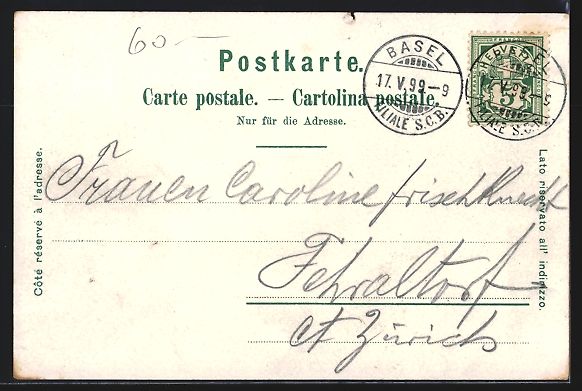 60.—
Postkarte.
Carte postale. — Cartolina postale.
Nur für die Adresse.
BASEL
17.V.99–9
FILIALE S.C.B.
HELVETIA
5
FILIALE S.C.B.
Côté réservé à l'adresse.
Lato riservato all' indirizzo.
Frauen Caroline Frischknecht
Fehraltorf
Ct Zürich